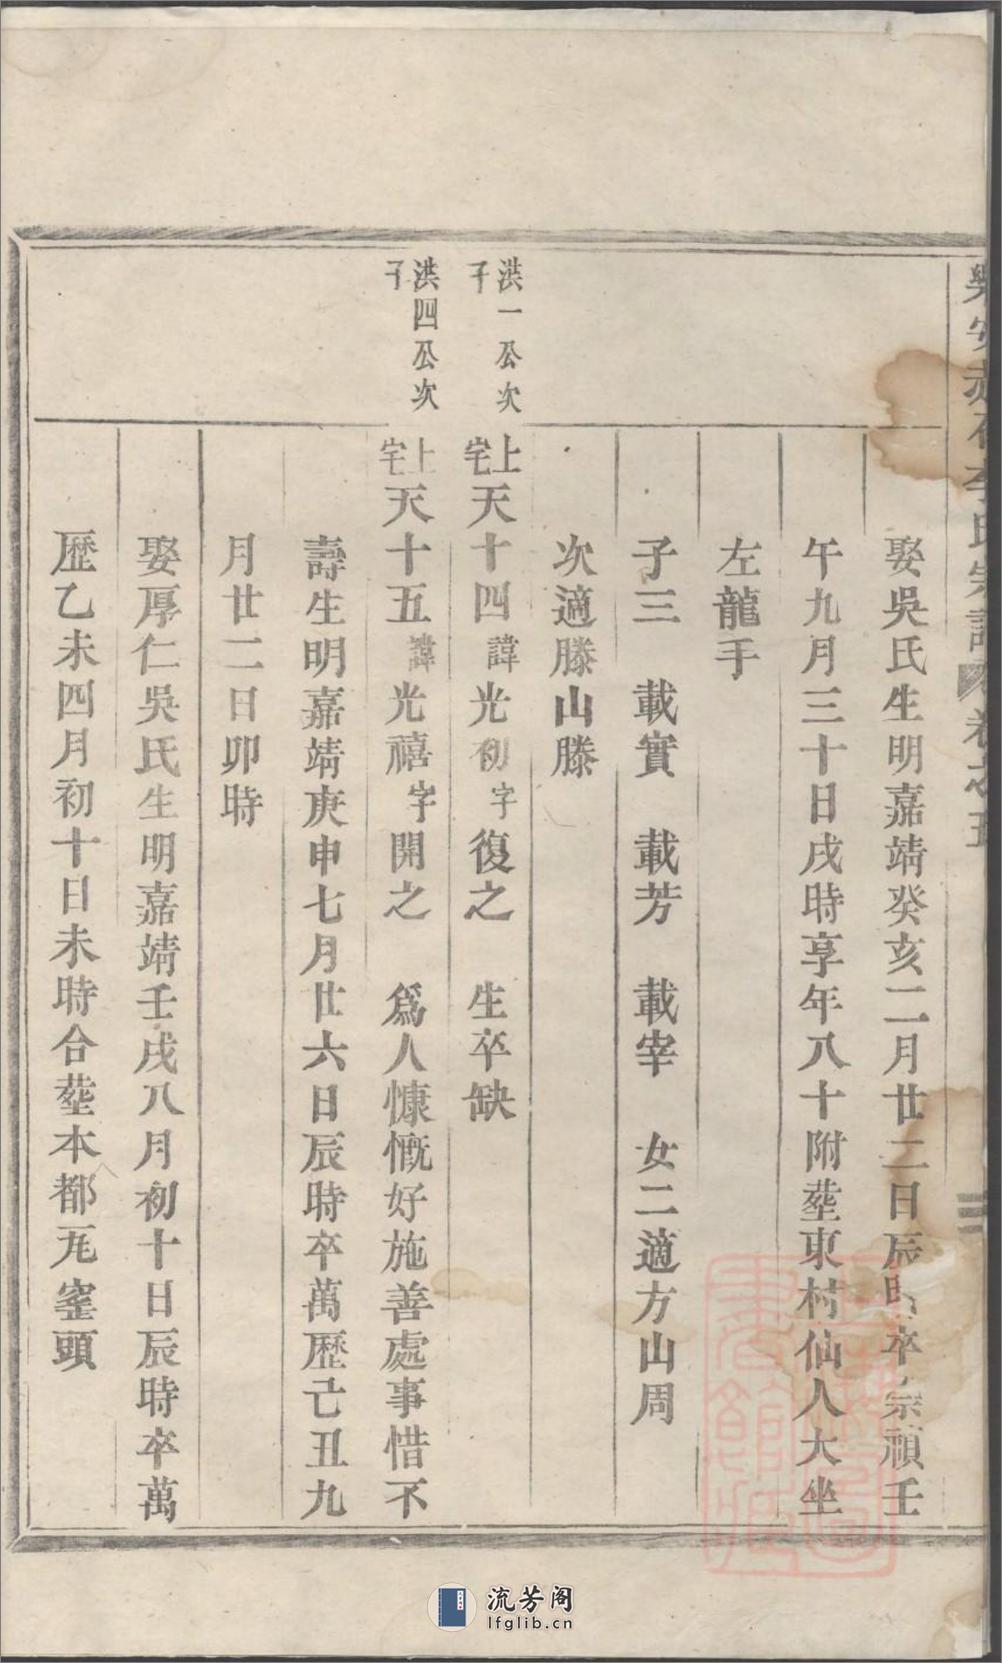 娶吳氏生明嘉靖癸亥二月廿二日辰時卒崇禎壬
午九月三十日戌時享年八十附塟東村仙人大坐
左龍手
子三　載實　載芳　載宰　女二適方山周
次適滕山滕
洪一公次子
上宅天十四諱光初字復之　生卒缺
洪四公次子
上宅天十五諱光禧字開之　爲人慷慨好施善處事惜不
壽生明嘉靖庚申七月廿六日辰時卒萬歷己丑九
月廿二日卯時
娶厚仁吳氏生明嘉靖壬戌八月初十日辰時卒萬
歷乙未四月初十日未時合塟本都瓦窰頭
流芳阁
lfglib.cn